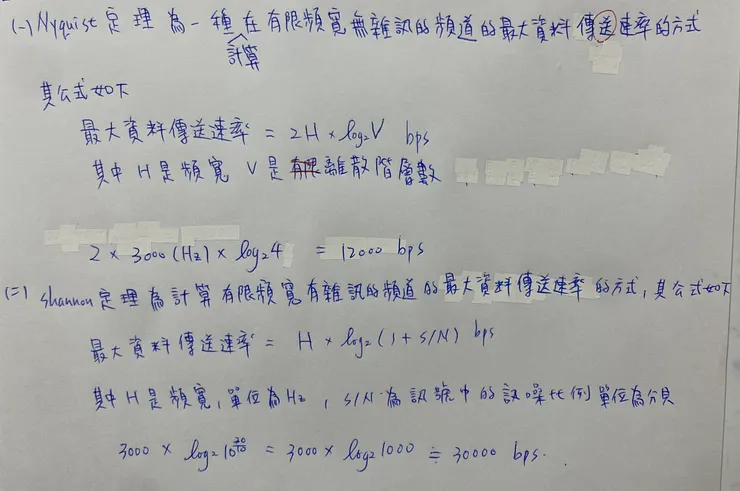 (一) Nyquist 定理為一種計算在有限頻寬無雜訊的頻道的最大資料傳送速率的方式
其公式如下
最大資料傳送速率 = 2H × log₂V bps
其中 H 是頻寬 V 是離散階層數
2 × 3000 (Hz) × log₂4 = 12000 bps
(二) shannon 定理為計算有限頻寬有雜訊的頻道的最大資料傳送速率的方式,其公式如下
最大資料傳送速率 = H × log₂(1+S/N) bps
其中 H 是頻寬,單位為 Hz,S/N 為訊號中的訊噪比例單位為分貝
3000 × log₂10^(30/10) = 3000 × log₂1000 ≒ 30000 bps.